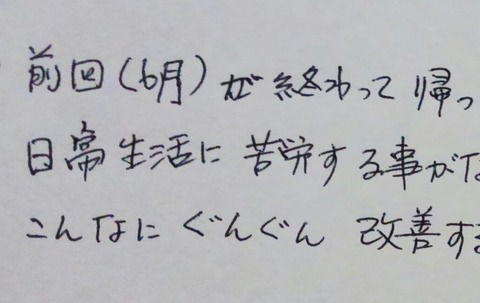 前回(6月)が終わって帰っ
日常生活に苦労する事がな
こんなにぐんぐん改善する